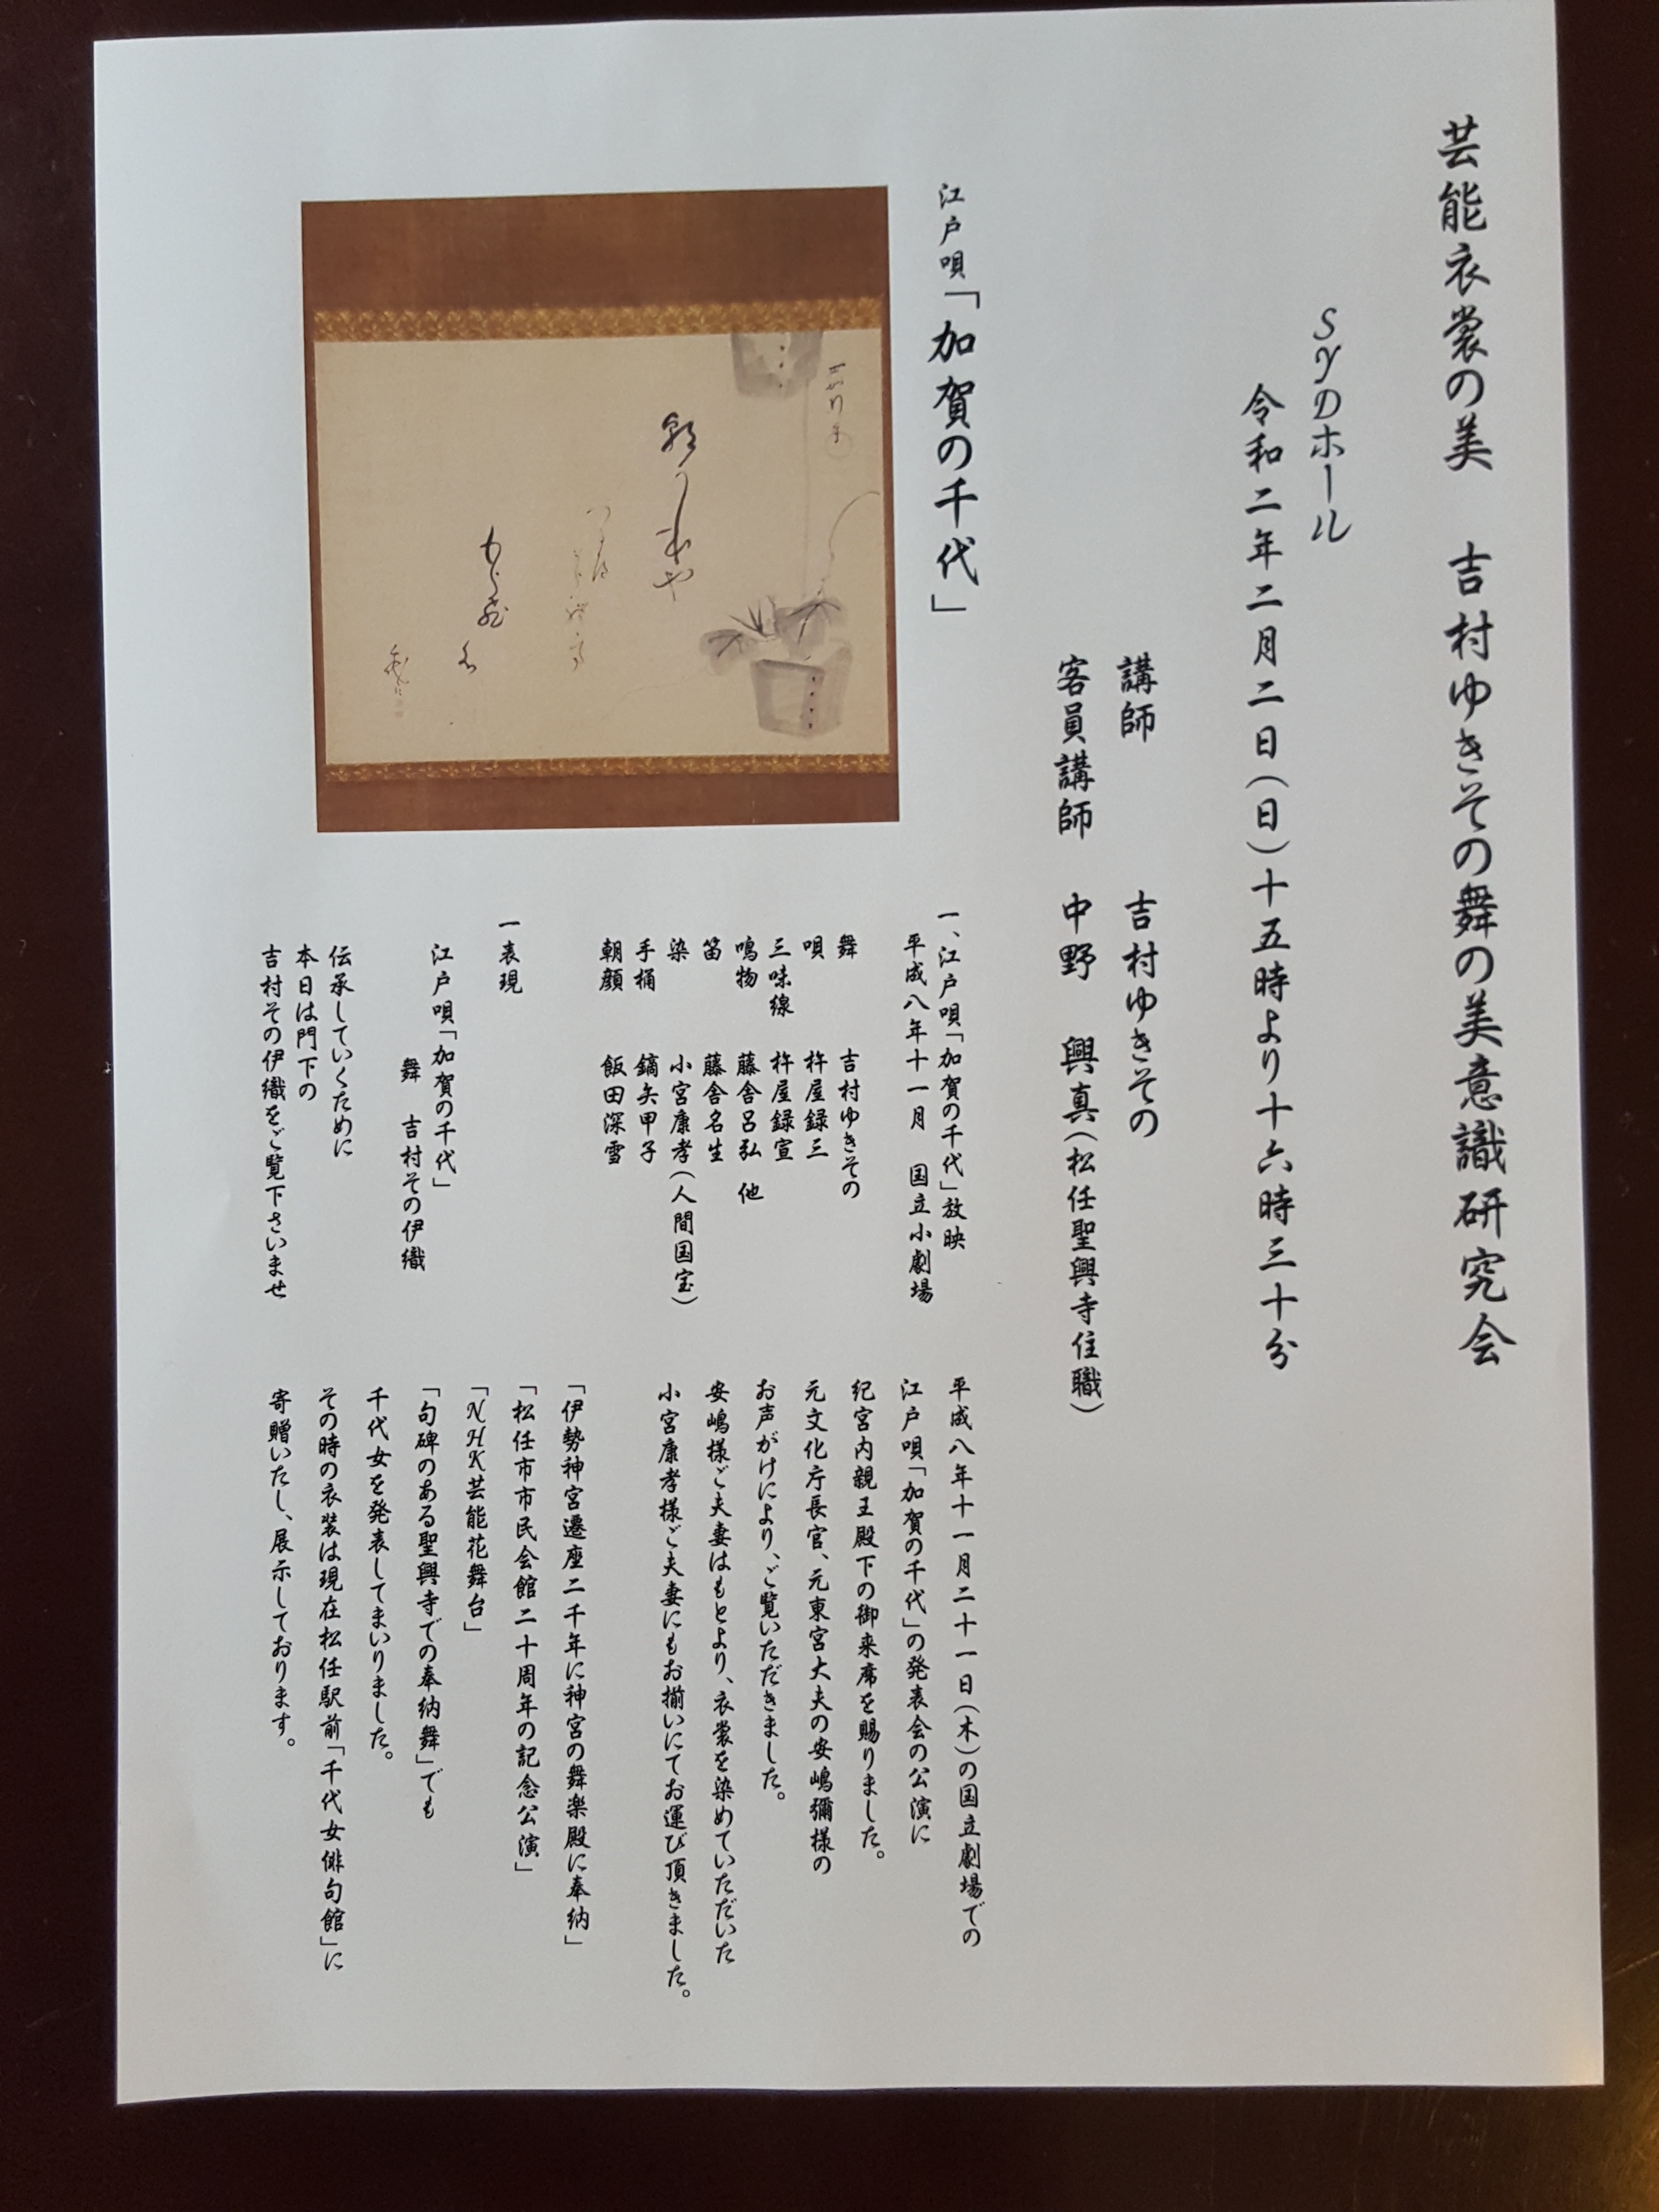 芸能衣裳の美　吉村ゆきその舞の美意識研究会
SYDホール
令和二年二月二日（日）十五時より十六時三十分
講師　吉村ゆきその
客員講師　中野　興真（松任聖興寺住職）
江戸唄「加賀の千代」
一、江戸唄「加賀の千代」放映
平成八年十一月　国立小劇場
舞　吉村ゆきその
唄　杵屋録三
三味線　杵屋録宣
鳴物　藤舎呂弘　他
笛　藤舎名生
染　小宮康孝（人間国宝）
手桶　鏑矢甲子
朝顔　飯田深雪
一表現
江戸唄「加賀の千代」
舞　吉村その伊織
伝承していくために
本日は門下の
吉村その伊織をご覧下さいませ
平成八年十一月二十一日（木）の国立劇場での
江戸唄「加賀の千代」の発表会の公演に
紀宮内親王殿下の御来席を賜りました。
元文化庁長官、元東宮大夫の安嶋彌様の
お声がけにより、ご覧いただきました。
安嶋様ご夫妻はもとより、衣裳を染めていただいた
小宮康孝様ご夫妻にもお揃いにてお運び頂きました。
「伊勢神宮遷座二千年に神宮の舞楽殿に奉納」
「松任市市民会館二十周年の記念公演」
「NHK芸能花舞台」
「句碑のある聖興寺での奉納舞」でも
千代女を発表してまいりました。
その時の衣装は現在松任駅前「千代女俳句館」に
寄贈いたし、展示しております。